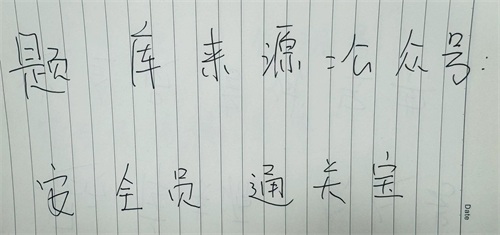 题库来源:公众号:
安全员通关宝
Date